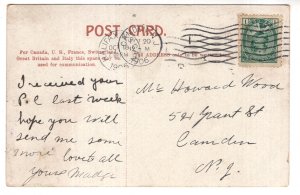 POST CARD.
For Canada, U. S., France, Switzerland,
Great Britain and Italy this space
used for communication.
1906
I received your
P.C. last week
hope you will
send me some
more love to all
yours Madge
Mr Howard Wood
524 Grant St
Camden
N. J.